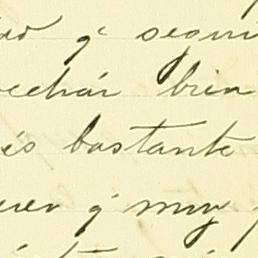 ad q' segui
echár bien
és bastante
rer q' muy